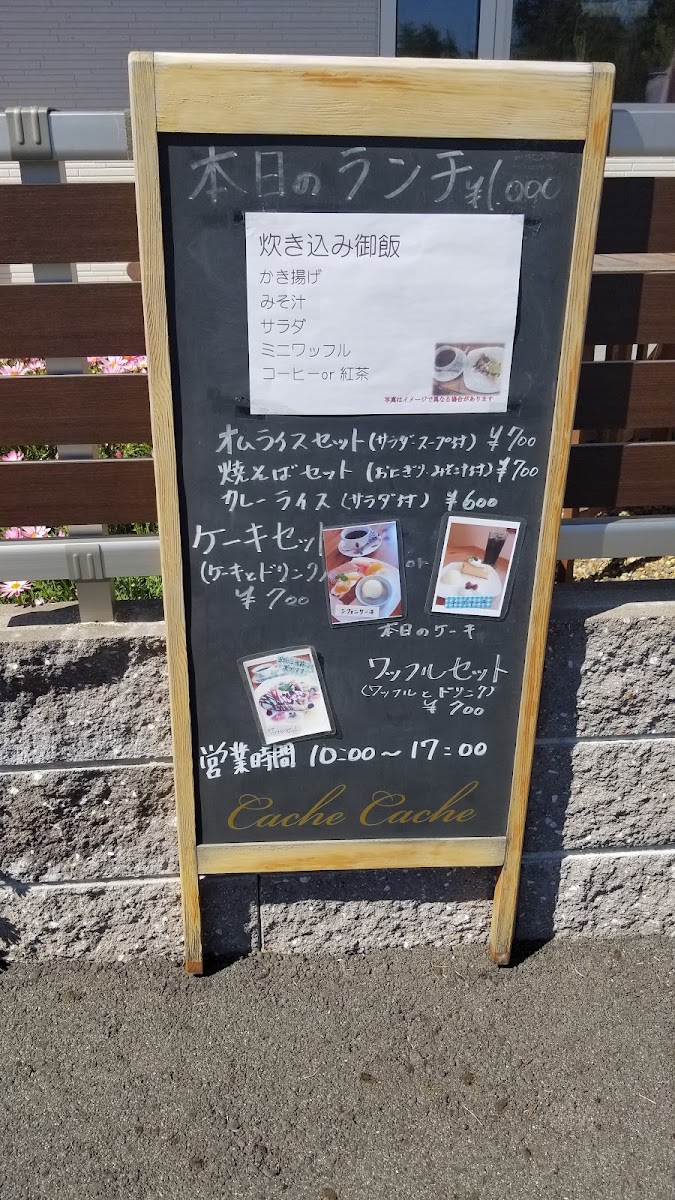 本日のランチ ¥1.000
炊き込み御飯
かき揚げ
みそ汁
サラダ
ミニワッフル
コーヒーor 紅茶
写真はイメージで異なる場合があります
オムライスセット(サラダ・スープ付) ¥700
焼そばセット (おにぎり、みそ汁付) ¥700
カレーライス (サラダ付) ¥600
ケーキセット
(ケーキとドリンク)
¥700
シフォンケーキ
or
本日のケーキ
ワッフルセット
(ワッフルとドリンク)
¥700
営業時間 10:00~17:00
Cache Cache